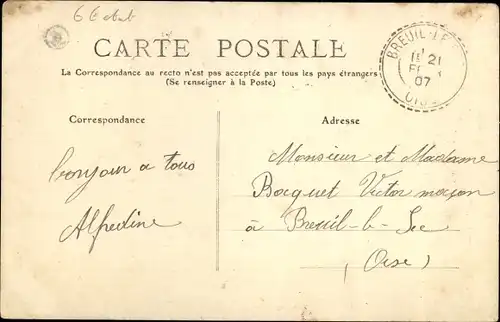 CARTE POSTALE
La Correspondance au recto n'est pas acceptée par tous les pays étrangers
(Se renseigner à la Poste)
BREUIL-LE-
21
07
OISE
Correspondance
Adresse
bonjour a tous
Alfredine
Monsieur et Madame
Baquet Victor maçon
à Breuil-le-Sec
(Oise)